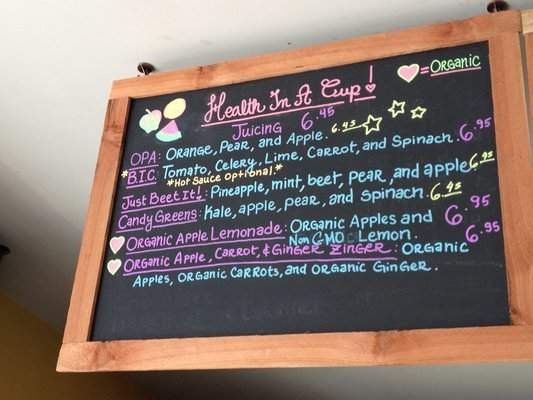 Health In A Cup!
= ORGANIC
Juicing 6.45
OPA: ORANGE, PEAR, AND APPLE. 6.45
*B.I.C. Tomato, Celery, Lime, Carrot, and Spinach. 6.95
*Hot Sauce Optional*
Just Beet It!: Pineapple, mint, beet, pear, and apple. 6.95
Candy Greens: Kale, apple, pear, and spinach. 6.45
ORGANIC APPLE LEMONADE: ORGANIC Apples and 6.95
Non GMO Lemon.
ORGANIC APPLE, CARROT, & GINGER ZINGER: ORGANIC 6.95
APPLES, ORGANIC CARROTS, and ORGANIC GINGER.